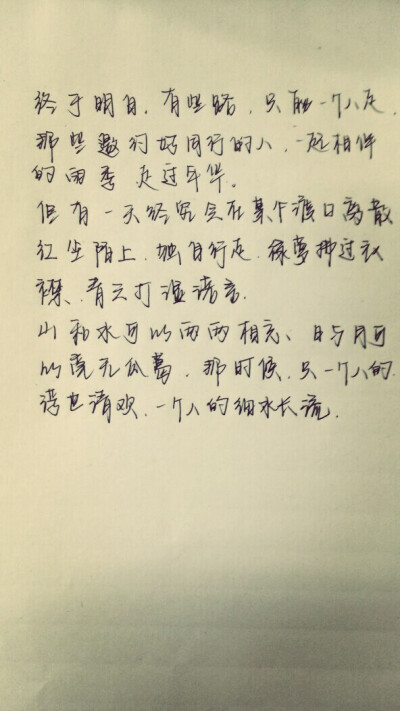 终于明白，有些路，只能一个人走。
那些邀约好同行的人，一起相伴
的雨季，走过年华。
但有一天终究会在某个渡口离散
红尘陌上，独自行走，绿萝拂过衣
襟，青云打湿诺言。
山和水可以两两相忘，日与月可
以毫无瓜葛，那时候，只一个人的
浮世清欢，一个人的细水长流。